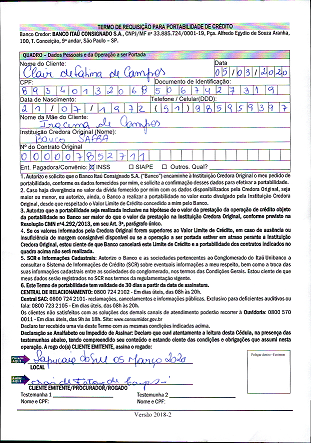 TERMO DE REQUISIÇÃO PARA PORTABILIDADE DE CRÉDITO
Banco Credor: BANCO ITAÚ CONSIGNADO S.A., CNPJ/MF nº 33.885.724/0001-19, Pça. Alfredo Egydio de Souza Aranha,
100, T. Conceição, 9º andar, São Paulo – SP.
QUADRO – Dados Pessoais e da Operação a ser Portada
Nome do Cliente: Data
de Campos 05 03 2020
CPF: Documento de Identificação:
Data de Nascimento: Telefone / Celular(DDD):
Nome da Mãe do Cliente:
Iracema de Campos
Instituição Credora Original (Nome):
Banco SAFRA
Nº do Contrato Original
Ent. Pagadora/Convênio: INSS SIAPE Outros. Qual?
1. Autorizo e solicito que o Banco Itaú Consignado S.A. ("Banco") encaminhe à Instituição Credora Original o meu pedido de
portabilidade, conforme os dados fornecidos por mim, e solicite a confirmação desses dados para efetivar a portabilidade.
2. Caso haja divergência no valor da dívida fornecido por mim com os dados disponibilizados pela Credora Original, seja
maior ou menor, ou autorizo, ainda, o Banco a realizar a portabilidade no valor exato divulgado pela Instituição Credora
Original, desde que respeitado o Valor Limite de Crédito concedido a mim pelo Banco.
3. Autorizo que a portabilidade seja realizada inclusive na hipótese de o valor da prestação da operação de crédito objeto
da portabilidade no Banco ser maior do que o valor da prestação na Instituição Credora Original, conforme prevê na
Resolução CMN nº4.292/2013, em seu Art. 3º, parágrafo único.
4. Se os valores informados pela Credora Original forem superiores ao Valor Limite de Crédito, em caso de ausência ou
insuficiência da margem consignável disponível ou se a operação a ser portada estiver em atraso perante a Instituição
Credora Original, estou ciente de que o Banco cancelará este Limite de Crédito e a portabilidade dos contratos indicados no
quadro acima não será realizada.
5. SCR e Informações Cadastrais: Autorizo o Banco e as sociedades pertencentes ao Conglomerado do Itaú Unibanco a
consultar o Sistema de Informações de Crédito (SCR) sobre eventuais informações a meu respeito, bem como a troca das
suas informações cadastrais entre as sociedades do conglomerado, nos termos das Condições Gerais. Estou ciente de que
meus dados serão registrados no SCR nos termos da regulamentação vigente.
6. Este Termo de portabilidade tem validade de 30 dias a partir da data de assinatura.
CENTRAL DE RELACIONAMENTO: 0800 724 2102 - Em dias úteis, das 09h às 20h.
Central SAC: 0800 724 2101- reclamações, cancelamentos e informações públicas. Exclusivo para deficientes auditivos ou
fala: 0800 723 2105 - Em dias úteis, das 09h às 20h.
Os clientes não satisfeitos com as soluções dos demais canais de atendimento poderão recorrer à Ouvidoria: 0800 570
0011 - Em dias úteis, das 9h às 18h. Site: www.consumidor.gov.br
Declaro ter recebido uma via deste Termo com as mesmas condições indicadas acima.
Declaração ao Analfabeto ou Impedido de Assinar: Declaro que ouvi atentamente a leitura desta Cédula, na presença das
testemunhas abaixo, tendo compreendido seu conteúdo e estando ciente das condições e obrigações que assumi nesta
operação. A rogo do(a) CLIENTE EMITENTE, assina o rogado:
05 Março 2020
LOCAL
CLIENTE EMITENTE/PROCURADOR/ROGADO
Testemunha 1 Testemunha 2
Nome e CPF: Nome e CPF:
Versão 2018-2